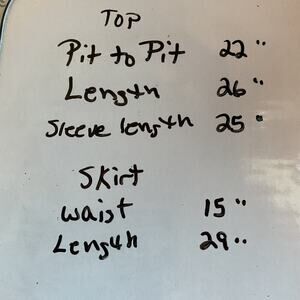 TOP
Pit to Pit 22"
Length 26"
Sleeve length 25"
Skirt
waist 15"
Length 29"